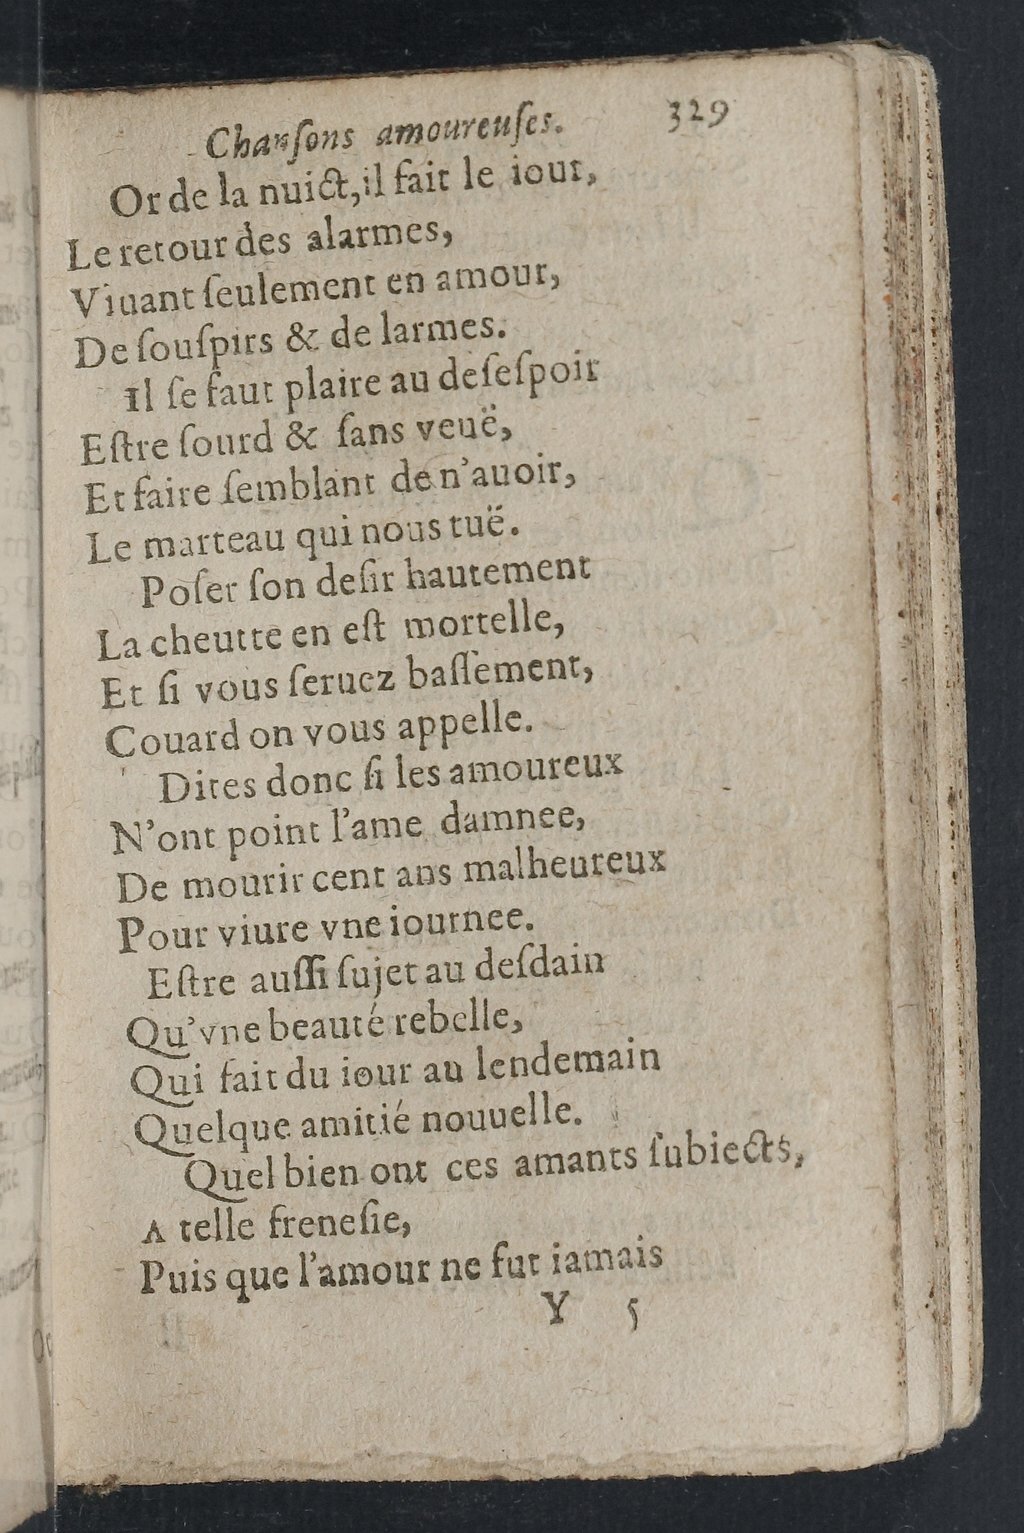 Chanſons amoureuſes. 329
Or de la nuict, il fait le iour,
Le retour des alarmes,
Viuant ſeulement en amour,
De ſouſpirs & de larmes.
Il ſe faut plaire au deſeſpoir
Eſtre ſourd & ſans veuë,
Et faire ſemblant de n'auoir,
Le marteau qui nous tuë.
Poſer ſon deſir hautement
La cheutte en eſt mortelle,
Et ſi vous ſeruez baſſement,
Couard on vous appelle.
Dites donc ſi les amoureux
N'ont point l'ame damnee,
De mourir cent ans malheureux
Pour viure vne iournee.
Eſtre auſſi ſujet au deſdain
Qu'vne beauté rebelle,
Qui fait du iour au lendemain
Quelque amitié nouuelle.
Quel bien ont ces amants ſubiects,
A telle freneſie,
Puis que l'amour ne fut iamais
Y 5